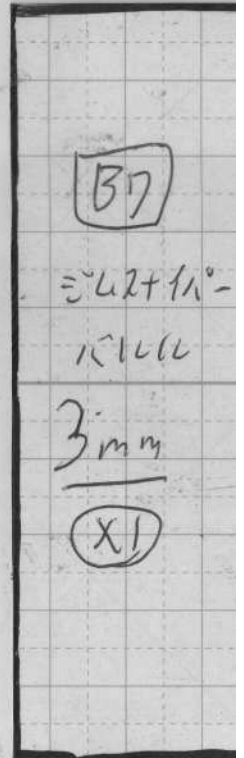 B7
ジムスナイパー
バレル
3mm
×1